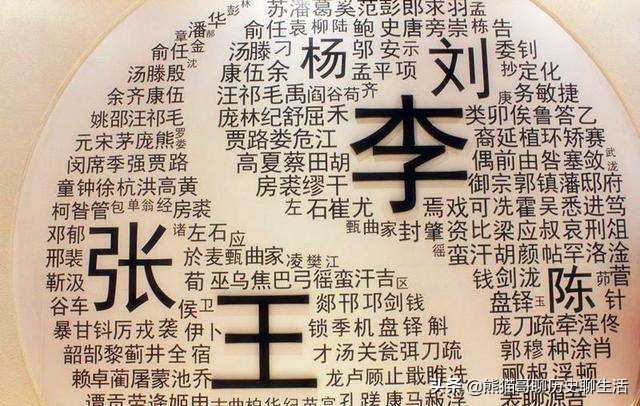 苏潘葛奚范彭郎求羽孟
彭林
潘华郝
俞任袁柳陆鲍史唐旁崇栋告
童金
俞任杨刘委钊
汤滕刁邬安示抄定化
汤滕殷康伍余孟平项
余齐康伍汪祁毛禹阎谷苟齐庚务敏捷
姚邵汪祁毛庞林纪舒屈禾李类卯俟鲁答乙
元宋茅庞熊罗娄贾路娄危江裔延植环矫赛
闵席季强贾路高夏蔡田胡偶前由昝塞效武泷
童钟徐杭洪高黄房裘缪干御宗郭镇藩邸府
柯昝管包单翁经房裘左石崔尤焉戏可冼霍吴悉进笃
甄曲家封肇资比梁应叔哀刑俎
邓郁张诸左石应徭蛮汗胡颜帖罕洛菅
邢裴於麦甄曲家凌樊江钱剑泷陈茆
靳汲荀巫乌焦巴弓徭蛮汗吉区针
谷车侯卫王郯邗邛剑钱盘铎玉
暴甘钭厉戎裘伊卜锁季机盘铎斛庞刀疏牵浑佟
韶郜黎蓟井全宿才汤关瓮弭刀疏郭穆种涂肖
赖卓蔺屠蒙池乔龙卢顾止戢睢冼郦赧浮顿
头条 @熊猫哥聊历史聊生活